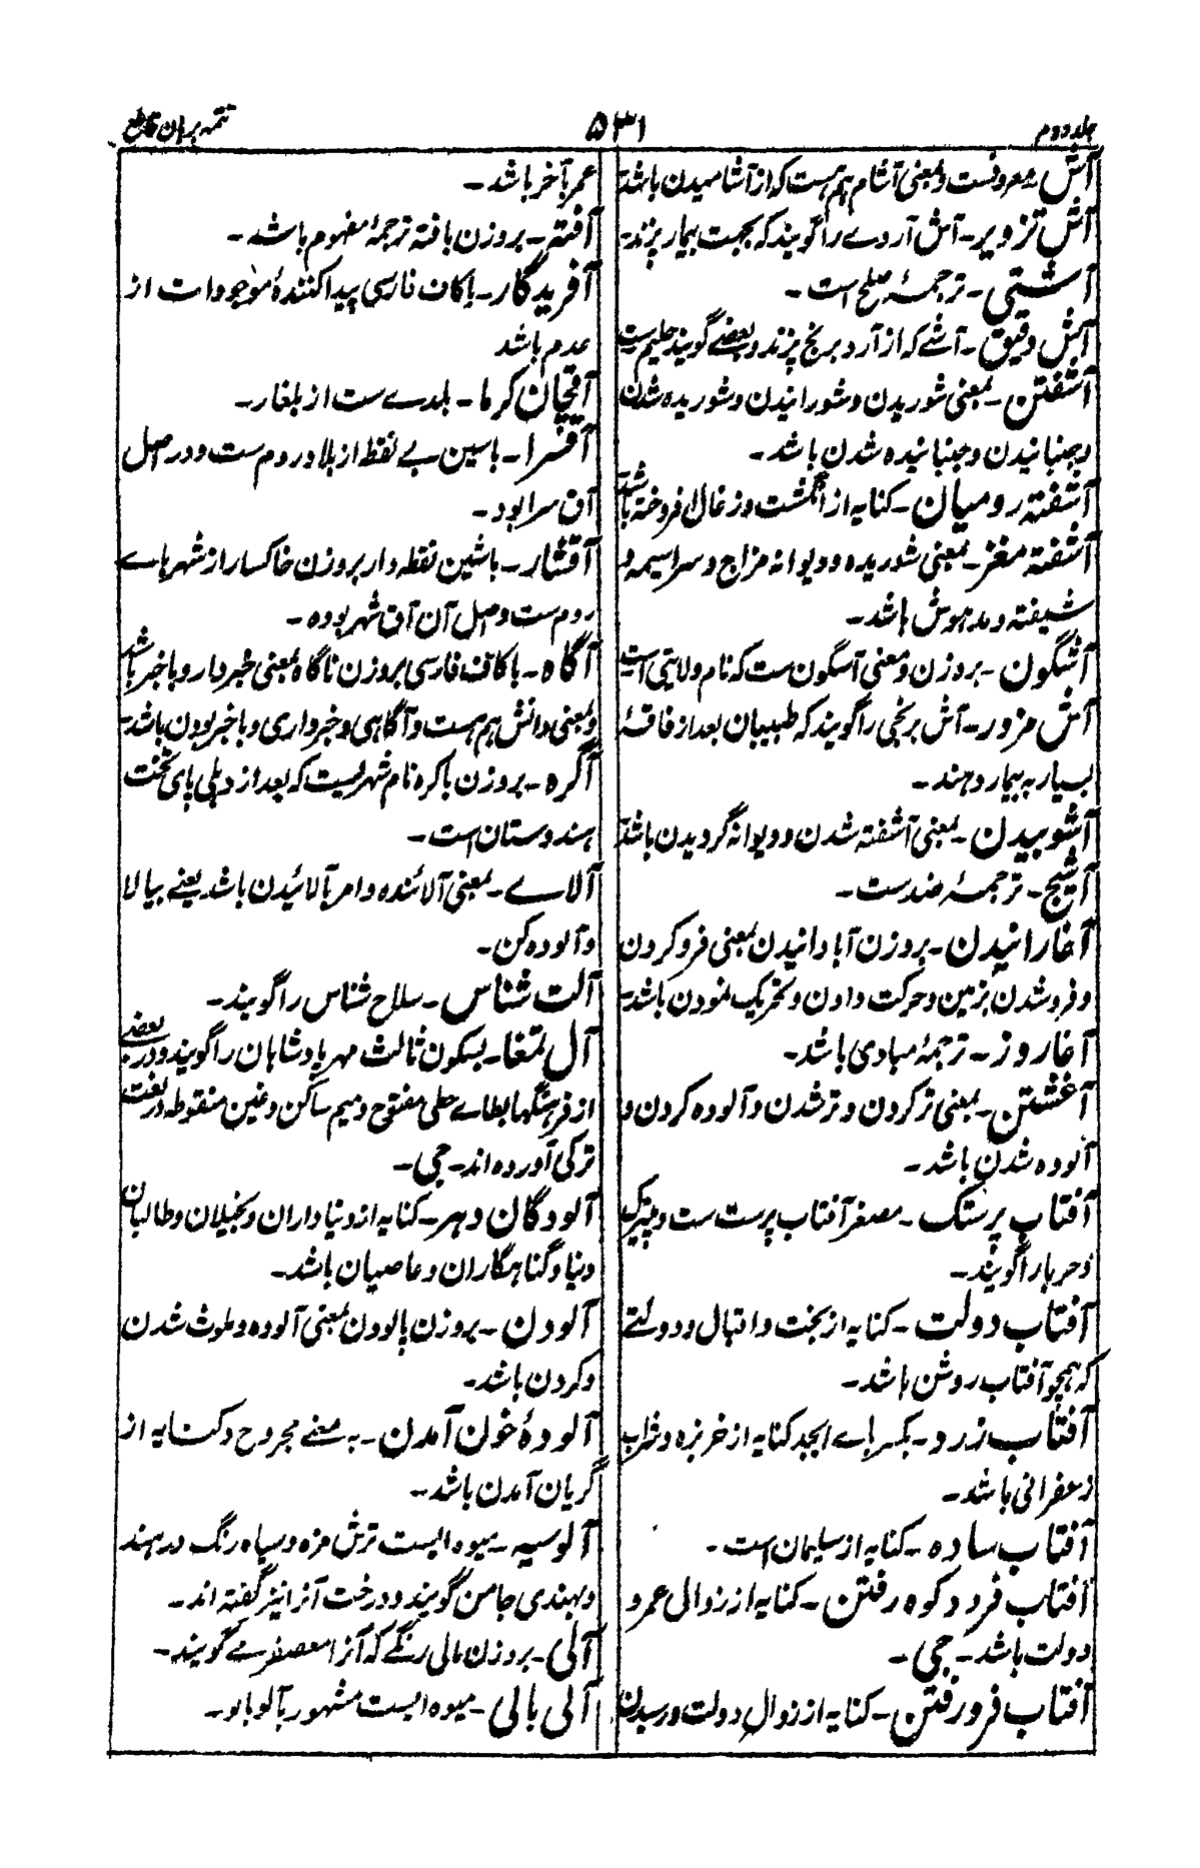 جلد دوم
۵۳۱
تتمہ برہان قاطع
آش ـ معروفست و بمعنی آشام ہم ہست کہ از آشامیدن باشد
آش تزویر ـ آش آردے را گویند کہ بجہت بیمار پزند ـ
آشتی ـ ترجمۂ صلح است ـ
آش دقیق ـ آشے کہ از آرد برنج پزند و بعضے گویند حلیم ست
آشفتن ـ بمعنی شوریدن و شورانیدن و شوریدہ شدن
و جنبانیدن و جنبانیدہ شدن باشد ـ
آشفتہ رومیان ـ کنایہ از انگشت و زغال افروختہ باشد
آشفتہ مغز ـ بمعنی شوریدہ و دیوانہ مزاج و سراسیمہ و
شیفتہ و مدہوش باشد ـ
آشگون ـ بروزن و معنی آسگون ست کہ نام ولایتی است
آش مزور ـ آش برنجی را گویند کہ طبیبان بعد از فاقۂ
بسیار بہ بیمار دہند ـ
آشوبیدن ـ بمعنی آشفتہ شدن و دیوانہ گردیدن باشد
آشیج ـ ترجمۂ ضدست ـ
آغارانیدن ـ بروزن آبادانیدن بمعنی فرو کردن
و فرو شدن بزمین و حرکت دادن و تحریک نمودن باشد
آغاروز ـ ترجمۂ مبادی باشد ـ
آغشتن ـ بمعنی تر کردن و تر شدن و آلودہ کردن و
آلودہ شدن باشد ـ
آفتاب پرستک ـ مصغر آفتاب پرست ست
و حربا را گویند ـ
آفتاب دولت ـ کنایہ از بخت و اقبال و دولتے
کہ ہمچو آفتاب روشن باشد ـ
آفتاب زرد ـ بکسر باے ابجد کنایہ از خربزہ و شراب
زعفرانی باشد ـ
آفتاب سادہ ـ کنایہ از سلیمان است ـ
آفتاب فرود کوہ رفتن ـ کنایہ از زوال عمر و
دولت باشد ـ جی ـ
آفتاب فرو رفتن ـ کنایہ از زوال دولت و رسیدن
عمر بآخر باشد ـ
آفتہ ـ بروزن بافتہ ترجمۂ مفہوم باشد ـ
آفریدگار ـ باکاف فارسی پیدا کنندۂ موجودات از
عدم باشد
آقچان کرما ـ بلدے ست از بلغار ـ
آقسرا ـ باسین بے نقطہ از بلاد روم ست و در اصل
آق سرا بود ـ
آقشار ـ باشین نقطہ دار بروزن خاکسار از شہرہاے
روم ست و اصل آن آق شہر بودہ ـ
آگاہ ـ باکاف فارسی بروزن ناگاہ بمعنی خبردار و باخبر باشد
و بمعنی دانش ہم ہست و آگاہی و خبرداری و باخبر بودن باشد
آگرہ ـ بروزن باکرہ نام شہریست کہ بعد از دہلی پای تخت
ہندوستان است ـ
آلاے ـ بمعنی آلائندہ و امر بآلائیدن باشد یعنے بیالا
و آلودہ کن ـ
آلت شناس ـ سلاح شناس را گویند ـ
آل تمغا ـ بسکون ثالث مہر بادشاہان را گویند و در بعضے
از فرہنگہا بطاے حطی مفتوح و میم ساکن و غین منقوطہ در لغت
ترکی آوردہ اند ـ جی ـ
آلودگان دہر ـ کنایہ از دنیاداران و بخیلان و طالبان
دنیا و گناہگاران و عاصیان باشد ـ
آلودن ـ بروزن پالودن بمعنی آلودہ و ملوث شدن
و کردن باشد ـ
آلودۂ خون آمدن ـ بہ معنے مجروح و کنایہ از
گریان آمدن باشد ـ
آلوسیہ ـ میوہ ایست ترش مزہ و سیاہ رنگ در ہند
و بہندی جامن گویند و درخت آنرا نیز گفتہ اند ـ
آلی ـ بروزن مالی رنگے کہ آنرا معصفر مے گویند ـ
آلی بالی ـ میوہ ایست مشہور بآلو بالو ـ